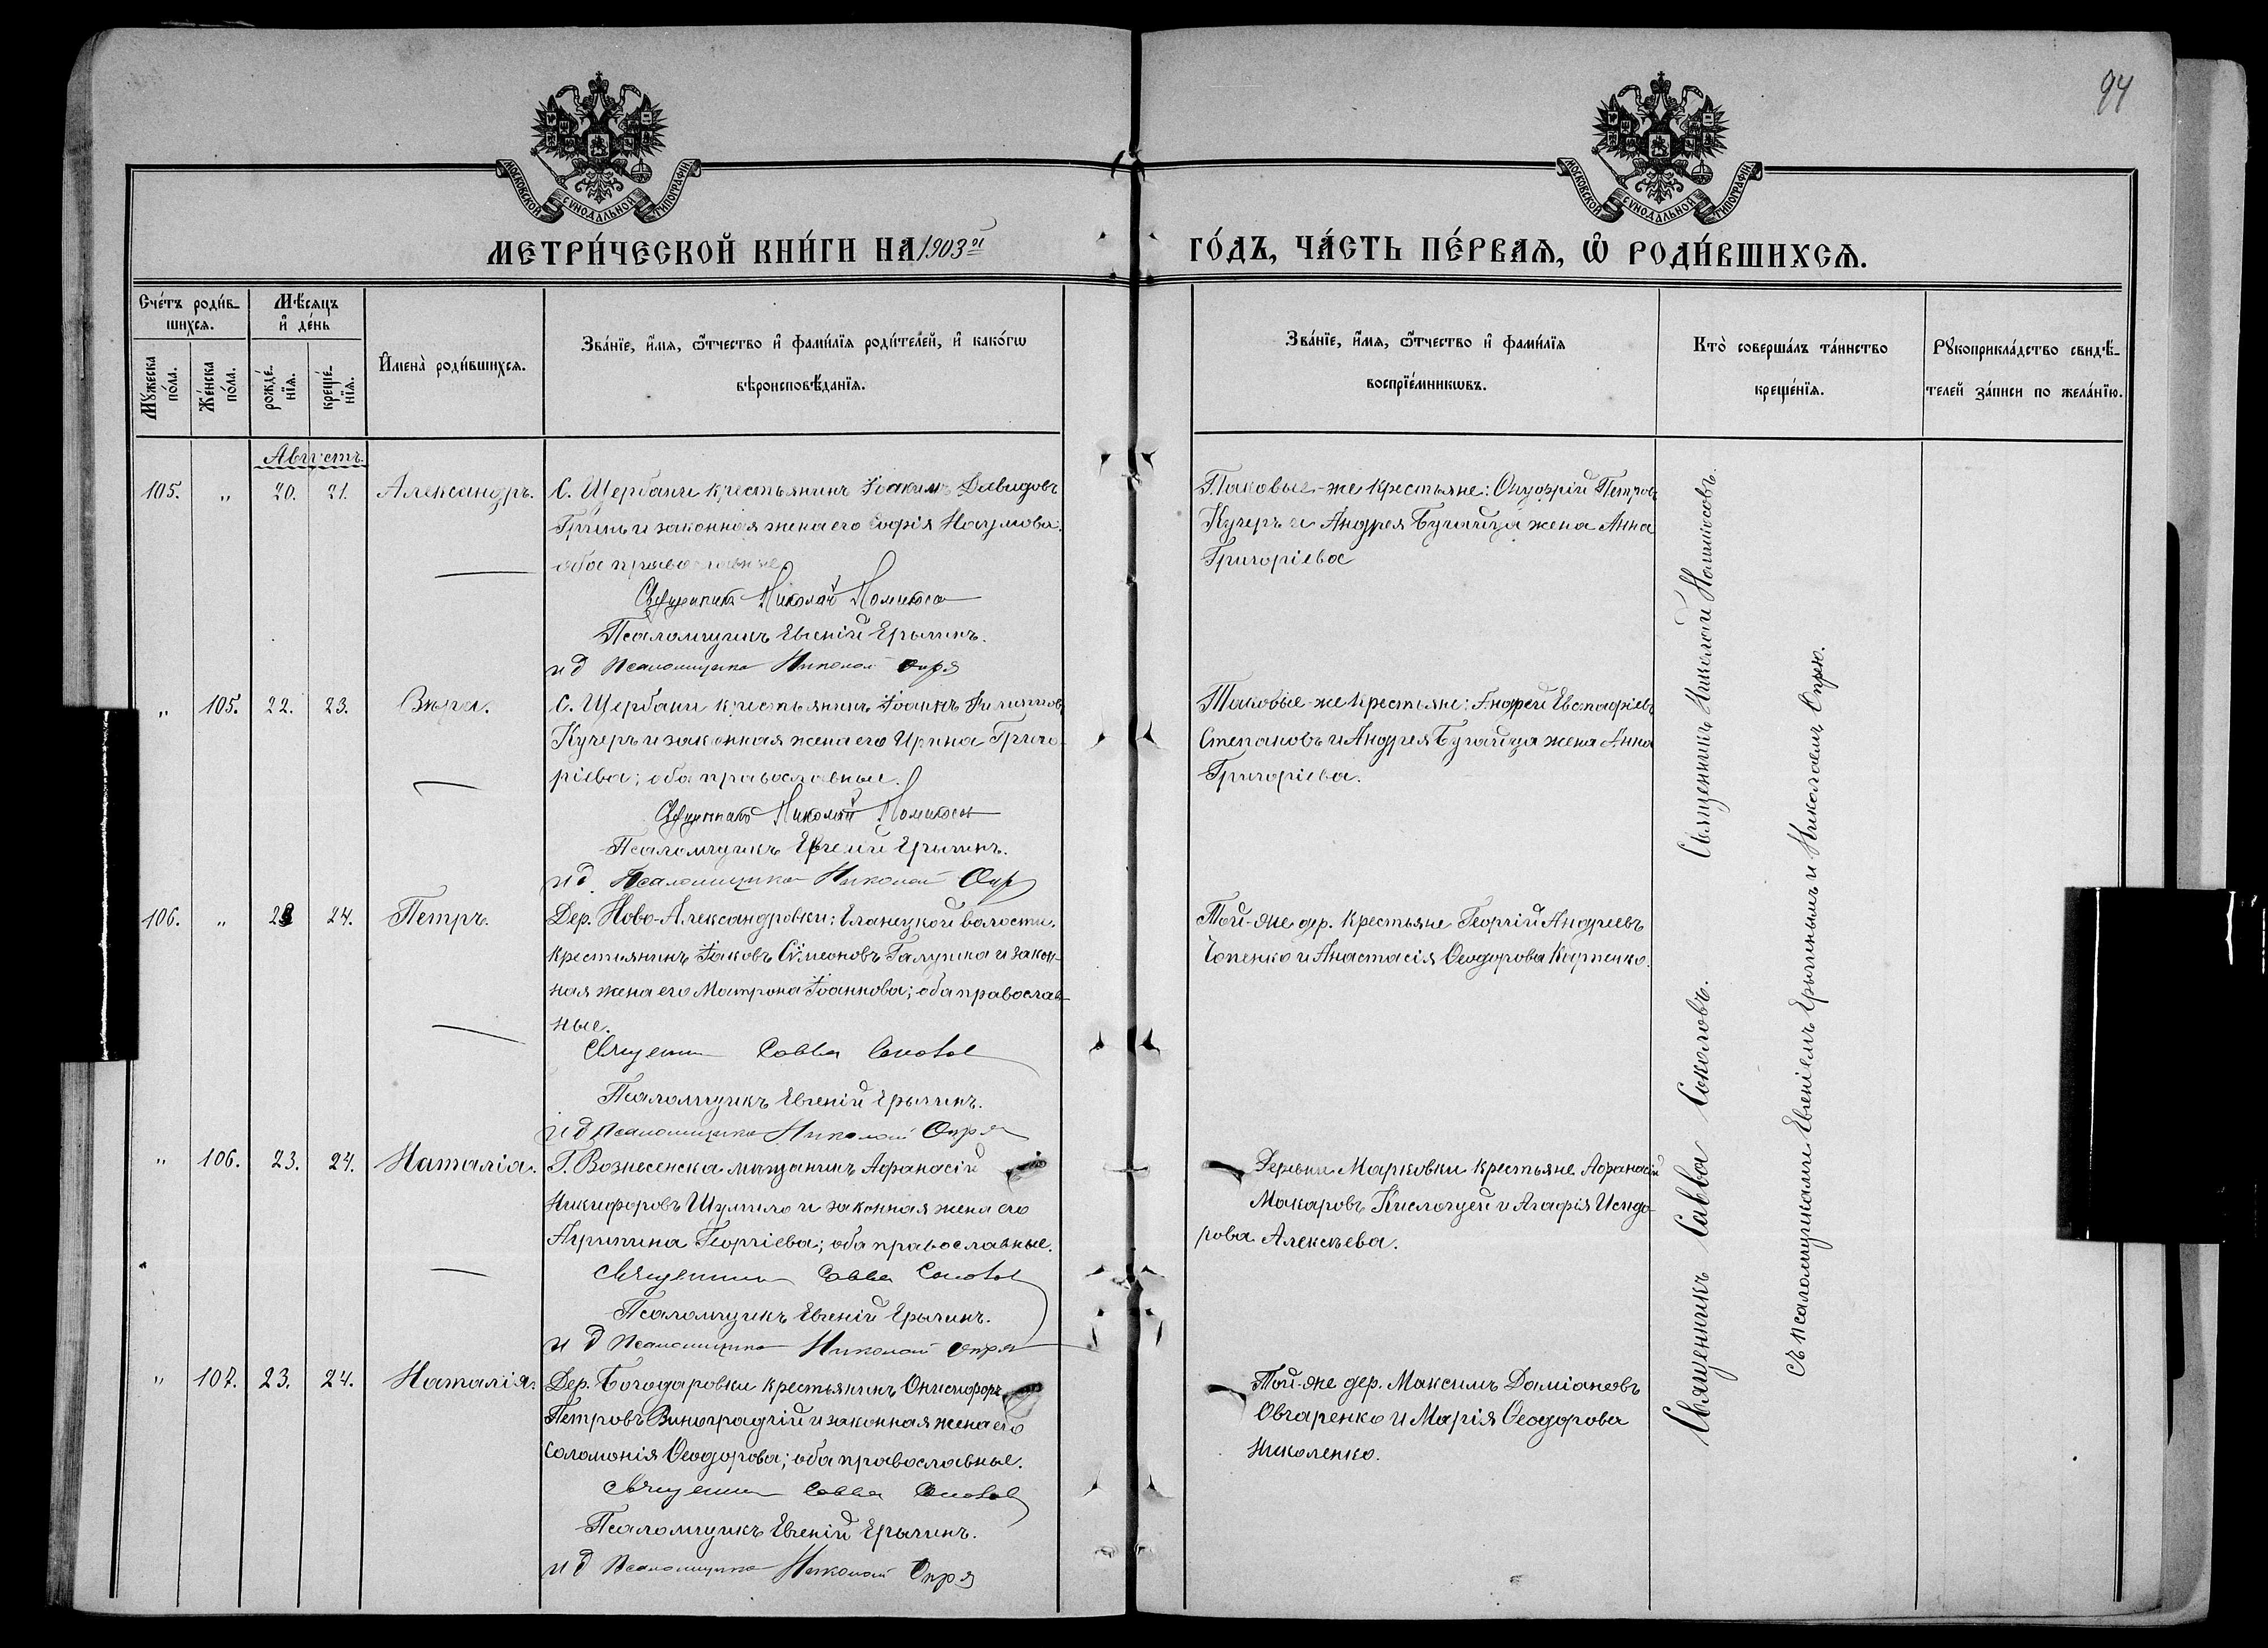 94
МОСКОВСКОЙ СѴНОДАЛЬНОЙ ТИПОГРАФІИ.
МОСКОВСКОЙ СѴНОДАЛЬНОЙ ТИПОГРАФІИ.
МЕТРИ́ЧЕСКОЙ КНИ́ГИ НА 1903й
ГО́ДЪ, ЧА́СТЬ ПЕ́РВАѦ, Ѡ҆ РОДИ́ВШИХСѦ.
Сче́тъ роди́в-
шихсѧ.
Мѣ́сѧцъ
и҆ де́нь
Мꙋ́жеска
по́ла.
Же́нска
по́ла.
рожде́-
нїѧ.
креще́-
нїѧ.
И҆мена̀ роди́вшихсѧ.
Зва́нїе, и҆́мѧ, ѻ҆́тчество и҆ фами́лїѧ роди́телей, и҆ како́гѡ
вѣроисповѣ́данїѧ.
Зва́нїе, и҆́мѧ, ѻ҆́тчество и҆ фами́лїѧ
воспрїе́мникѡвъ.
Кто̀ соверша́лъ та́инство
креще́нїѧ.
Рꙋкоприкла́дство свидѣ́-
телей за́писи по жела́нїю.
Августъ.
105. „ 20. 21. Александръ.
С. Щербани крестьянинъ Іоакимъ Давидовъ
Гринь и законная жена его Софія Наумова.
оба православные
Священникъ Николай
Псаломщикъ Евгеній Ерычинъ.
и д псаломщика Николай Опря
Таковые-же крестьяне: Онуфрій Петровъ
Кучеръ и Андрея Бугайца жена Анна
Григоріева
„ 105. 22. 23. Вѣра.
С. Щербани крестьянинъ Іоаннъ Филипповъ
Кучеръ и законная жена его Ирина Григо-
ріева; оба православные.
Священникъ Николай
Псаломщикъ Евгеній Ерычинъ.
и д. Псаломщика Николай Опря
Таковые-же крестьяне: Андрей Евстафіевъ
Степановъ и Андрея Бугайца жена Анна
Григоріева.
106. „ 23 24. Петръ.
Дер. Ново-Александровки; Еланецкой волости,
крестьянинъ Іаковъ Сѵмеоновъ Галушка и закон-
ная жена его Матрона Іоаннова; оба православ-
ные.
Священникъ Савва Соколовъ
Псаломщикъ Евгеній Ерычинъ.
и д Псаломщика Николай Опря
Той-же дер. крестьяне Георгій Андреевъ
Чопенко и Анастасія Ѳеодорова Карпенко.
„ 106. 23. 24. Наталія.
Г. Вознесенска мѣщанинъ Аѳанасій
Никифоровъ Шумило и законная жена его
Агрипина Георгіева; оба православные.
Священникъ Савва Соколовъ
Псаломщикъ Евгеній Ерычинъ.
и д Псаломщика Николай Опря
Деревни Марковки крестьяне Аѳанасій
Макаровъ и Агафія Исидо-
рова Алексѣева.
„ 107. 23. 24. Наталія.
Дер. Богодаровки крестьянинъ Онисифоръ
Петровъ Виноградчій и законная жена его
Соломонія Ѳеодорова; оба православные.
Священникъ Савва Соколовъ
Псаломщикъ Евгеній Ерычинъ.
и д Псаломщика Николай Опря
Той-же дер. Максимъ Даміановъ
Овчаренко и Марія Ѳеодорова
Николенко.
Священникъ Николай
Священникъ Савва Соколовъ.
съ псаломщиками Евгеніемъ Ерычинымъ и Николаемъ Опрею.